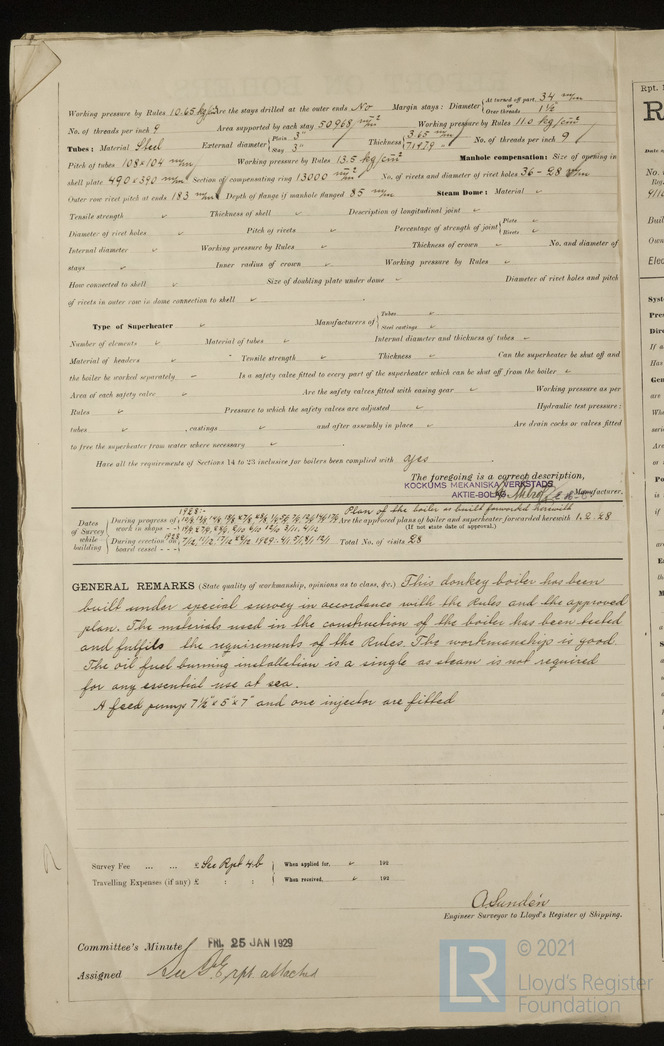 Working pressure by Rules 10.65 kg/cm² Are the stays drilled at the outer ends No Margin stays: Diameter { At turned off part, 34 m/m or Over threads 1½"
No. of threads per inch 9 Area supported by each stay 50968 m/m² Working pressure by Rules 11.0 kg/cm²
Tubes: Material Steel External diameter { Plain 3" Stay 3" Thickness { 3.65 m/m No. of threads per inch 9
Pitch of tubes 108x104 m/m Working pressure by Rules 13.5 kg/cm² Manhole compensation: Size of opening in
shell plate 490x390 m/m Section of compensating ring 13000 m/m² No. of rivets and diameter of rivet holes 36 - 28 m/m
Outer row rivet pitch at ends 183 m/m Depth of flange if manhole flanged 85 m/m Steam Dome: Material
Tensile strength Thickness of shell Description of longitudinal joint
Diameter of rivet holes Pitch of rivets Percentage of strength of joint { Plate Rivets
Internal diameter Working pressure by Rules Thickness of crown No. and diameter of
stays Inner radius of crown Working pressure by Rules
How connected to shell Size of doubling plate under dome Diameter of rivet holes and pitch
of rivets in outer row in dome connection to shell
Type of Superheater Manufacturers of { Tubes Steel castings
Number of elements Material of tubes Internal diameter and thickness of tubes
Material of headers Tensile strength Thickness Can the superheater be shut off and
the boiler be worked separately Is a safety valve fitted to every part of the superheater which can be shut off from the boiler
Area of each safety valve Are the safety valves fitted with easing gear Working pressure as per
Rules Pressure to which the safety valves are adjusted Hydraulic test pressure:
tubes , castings and after assembly in place Are drain cocks or valves fitted
to free the superheater from water where necessary
Have all the requirements of Sections 14 to 23 inclusive for boilers been complied with yes
The foregoing is a correct description,
KOCKUMS MEKANISKA VERKSTADS
AKTIE-BOLAG Manufacturer.
Plan of the boiler as built forwarded herewith
Dates of Survey while building { During progress of work in shops - - 1928:- Are the approved plans of boiler and superheater forwarded herewith 1.2.28
(If not state date of approval.)
During erection on board vessel - - - 1928 Total No. of visits 28
GENERAL REMARKS (State quality of workmanship, opinions as to class, &c.) This donkey boiler has been
built under special survey in accordance with the Rules and the approved
plan. The materials used in the construction of the boiler has been tested
and fulfils the requirements of the Rules. The workmanship is good.
The oil fuel burning installation is a single as steam is not required
for any essential use at sea.
A feed pump 7½"x5"x7" and one injector are fitted
Survey Fee ... ... £ See Rpt 4b When applied for, 192
Travelling Expenses (if any) £ : : When received, 192
A Sundén
Engineer Surveyor to Lloyd's Register of Shipping.
Committee's Minute FRI. 25 JAN 1929
Assigned See F.E. rpt. attached
LR © 2021
Lloyd's Register
Foundation
Rpt.